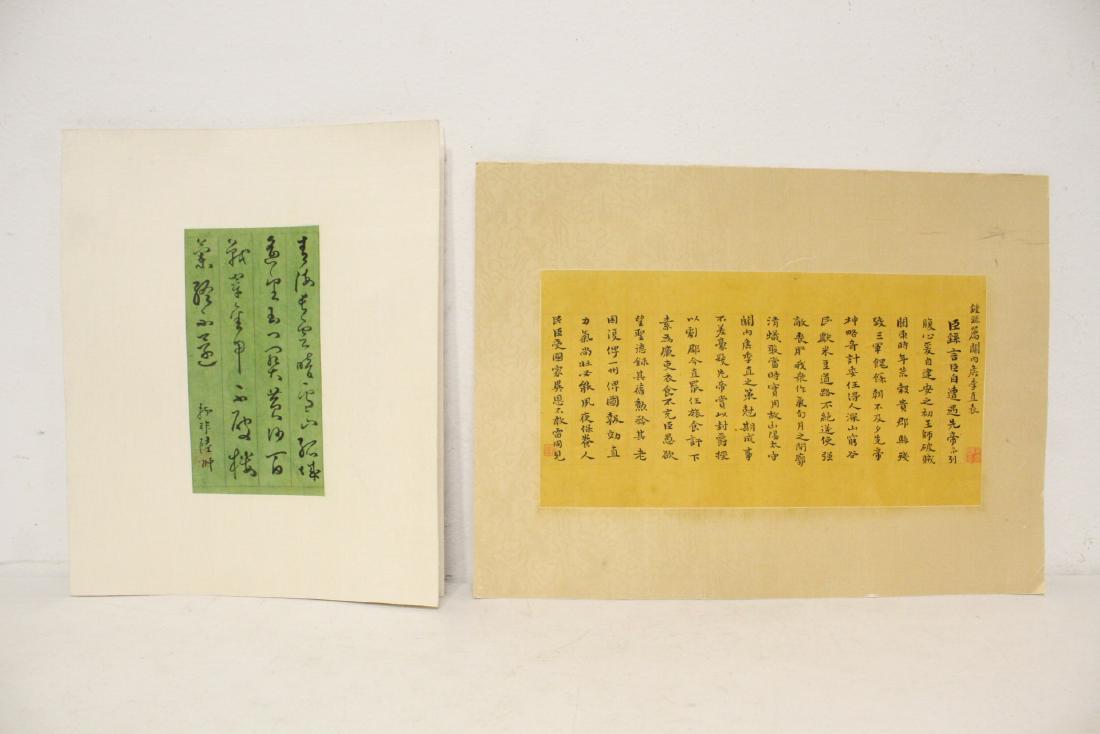 青海長雲暗雪山孤城
遥望玉门关黄沙百
战穿金甲不破楼
蘭終不還
薦關內侯季直表
臣繇言臣自遭遇先帝忝列
腹心爰自建安之初王師破賊
關東時年荒穀貴郡縣殘
毀三軍餽饟朝不及夕先帝
神略奇計委任得人深山窮谷
民獻米豆道路不絕遂使強
敵喪膽我衆作氣旬月之間廓
清蟻聚當時實用故山陽太守
關內侯季直之策尅期成事
不差豪髮先帝賞以封爵授
以劇郡今直罷任旅食許下
素為廉吏衣食不充臣愚欲
望聖德錄其舊勳矜其老
困復俾一州俾圖報效直
力氣尚壯必能夙夜保養人
民臣受國家異恩不敢雷同見